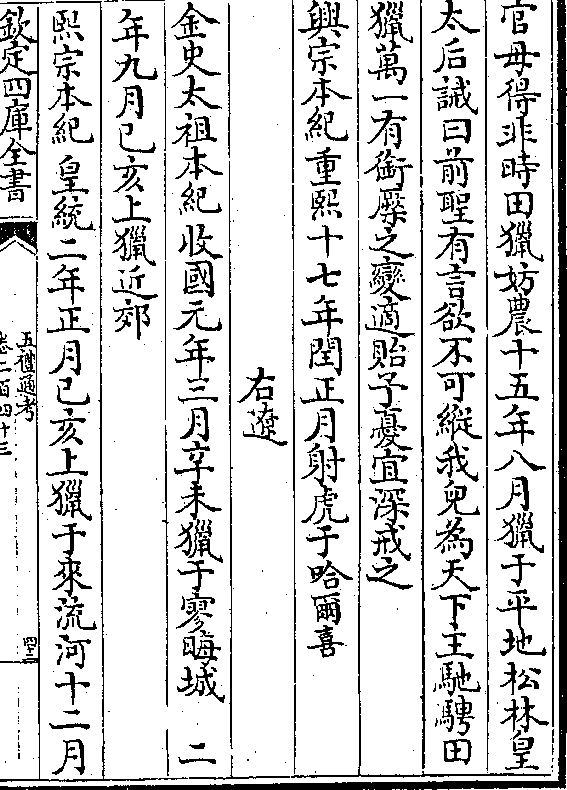 官毋得非時田獵妨農十五年八月獵于平地松林皇
太后誡曰前聖有言欲不可縱我兒為天下主馳騁田
獵萬一有銜橛之變適貽予憂宜深戒之
興宗本紀重熙十七年閏正月射虎于哈爾喜
右遼
金史太祖本紀收國元年三月辛未獵于寥晦城 二
年九月己亥上獵近郊
熙宗本紀皇統二年正月己亥上獵于來流河十二月
欽定四庫全書
五禮通考
卷二百四十三